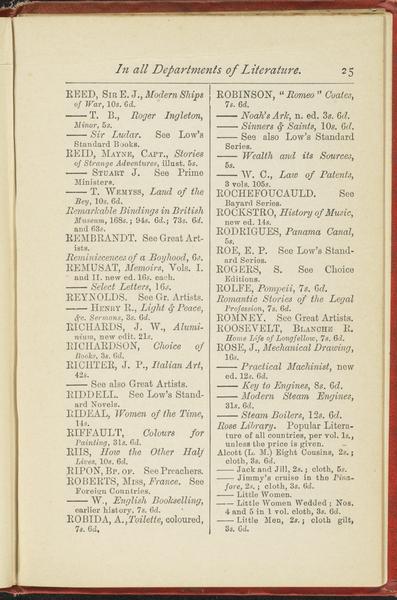 In all Departments of Literature. 25
REED, SIR E. J., Modern Ships
of War, 10s. 6d.
—— T. B., Roger Ingleton,
Minor, 5s.
—— Sir Ludar. See Low's
Standard Books.
REID, MAYNE, CAPT., Stories
of Strange Adventures, illust. 5s.
—— STUART J. See Prime
Ministers.
—— T. WEMYSS, Land of the
Bey, 10s. 6d.
Remarkable Bindings in British
Museum, 168s.; 94s. 6d.; 73s. 6d.
and 63s.
REMBRANDT. See Great Art-
ists.
Reminiscences of a Boyhood, 6s.
REMUSAT, Memoirs, Vols. I.
and II. new ed. 16s. each.
—— Select Letters, 16s.
REYNOLDS. See Gr. Artists.
—— HENRY R., Light & Peace,
&c. Sermons, 3s. 6d.
RICHARDS, J. W., Alumi-
nium, new edit. 21s.
RICHARDSON, Choice of
Books, 3s. 6d.
RICHTER, J. P., Italian Art,
42s.
—— See also Great Artists.
RIDDELL. See Low's Stand-
ard Novels.
RIDEAL, Women of the Time,
14s.
RIFFAULT, Colours for
Painting, 31s. 6d.
RIIS, How the Other Half
Lives, 10s. 6d.
RIPON, BP. OF. See Preachers.
ROBERTS, MISS, France. See
Foreign Countries.
—— W., English Bookselling,
earlier history, 7s. 6d.
ROBIDA, A., Toilette, coloured,
7s. 6d.
ROBINSON, "Romeo" Coates,
7s. 6d.
—— Noah's Ark, n. ed. 3s. 6d.
—— Sinners & Saints, 10s. 6d.
—— See also Low's Standard
Series.
—— Wealth and its Sources,
5s.
—— W. C., Law of Patents,
3 vols. 105s.
ROCHEFOUCAULD. See
Bayard Series.
ROCKSTRO, History of Music,
new ed. 14s.
RODRIGUES, Panama Canal,
5s.
ROE, E. P. See Low's Stand-
ard Series.
ROGERS, S. See Choice
Editions.
ROLFE, Pompeii, 7s. 6d.
Romantic Stories of the Legal
Profession, 7s. 6d.
ROMNEY. See Great Artists.
ROOSEVELT, BLANCHE R.
Home Life of Longfellow, 7s. 6d.
ROSE, J., Mechanical Drawing,
16s.
—— Practical Machinist, new
ed. 12s. 6d.
—— Key to Engines, 8s. 6d.
—— Modern Steam Engines,
31s. 6d.
—— Steam Boilers, 12s. 6d.
Rose Library. Popular Litera-
ture of all countries, per vol. 1s.,
unless the price is given.
Alcott (L. M.) Eight Cousins, 2s.;
cloth, 3s. 6d.
—— Jack and Jill, 2s.; cloth, 5s.
—— Jimmy's cruise in the Pina-
fore, 2s.; cloth, 3s. 6d.
—— Little Women.
—— Little Women Wedded; Nos.
4 and 5 in 1 vol. cloth, 3s. 6d.
—— Little Men, 2s.; cloth gilt,
3s. 6d.